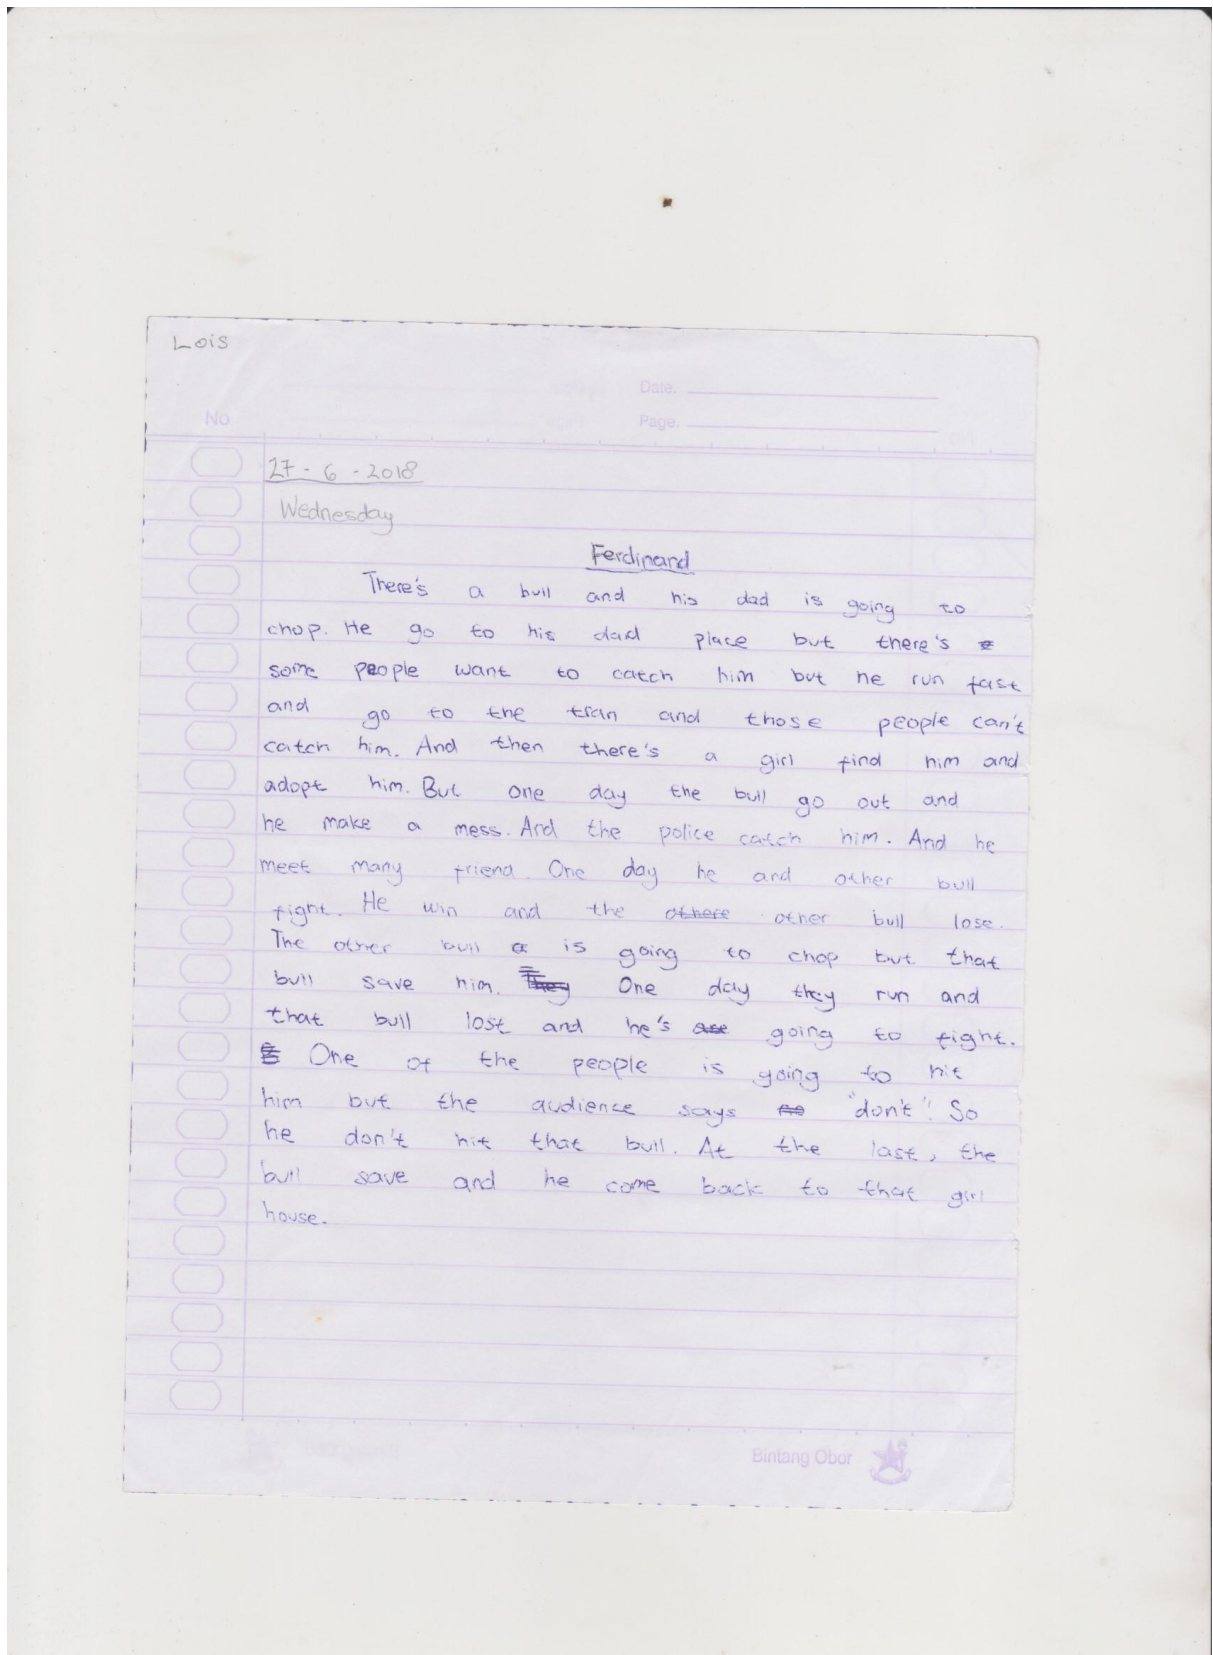 Lois
Date.
No
Page.
27 - 6 - 2018
Wednesday
Ferdinand
There's a bull and his dad is going to
chop. He go to his dad place but there's
some people want to catch him but he run fast
and go to the tran and those people can't
catch him. And then there's a girl find him and
adopt him. But one day the bull go out and
he make a mess. And the police catch him. And he
meet many friend. One day he and other bull
fight. He win and the othere other bull lose.
The other bull a is going to chop but that
bull save him. They One day they run and
that bull lost and he's are going to fight.
One of the people is going to hit
him but the audience says no "don't". So
he don't hit that bull. At the last, the
bull save and he come back to that girl
house.
Bintang Obor